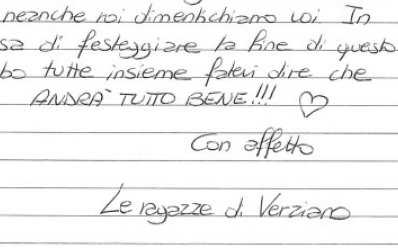 neanche noi dimentichiamo voi. In
sa di festeggiare la fine di questo
bo tutte insieme fatevi dire che
ANDRA' TUTTO BENE!!! ♡
Con affetto
Le ragazze di Verziano